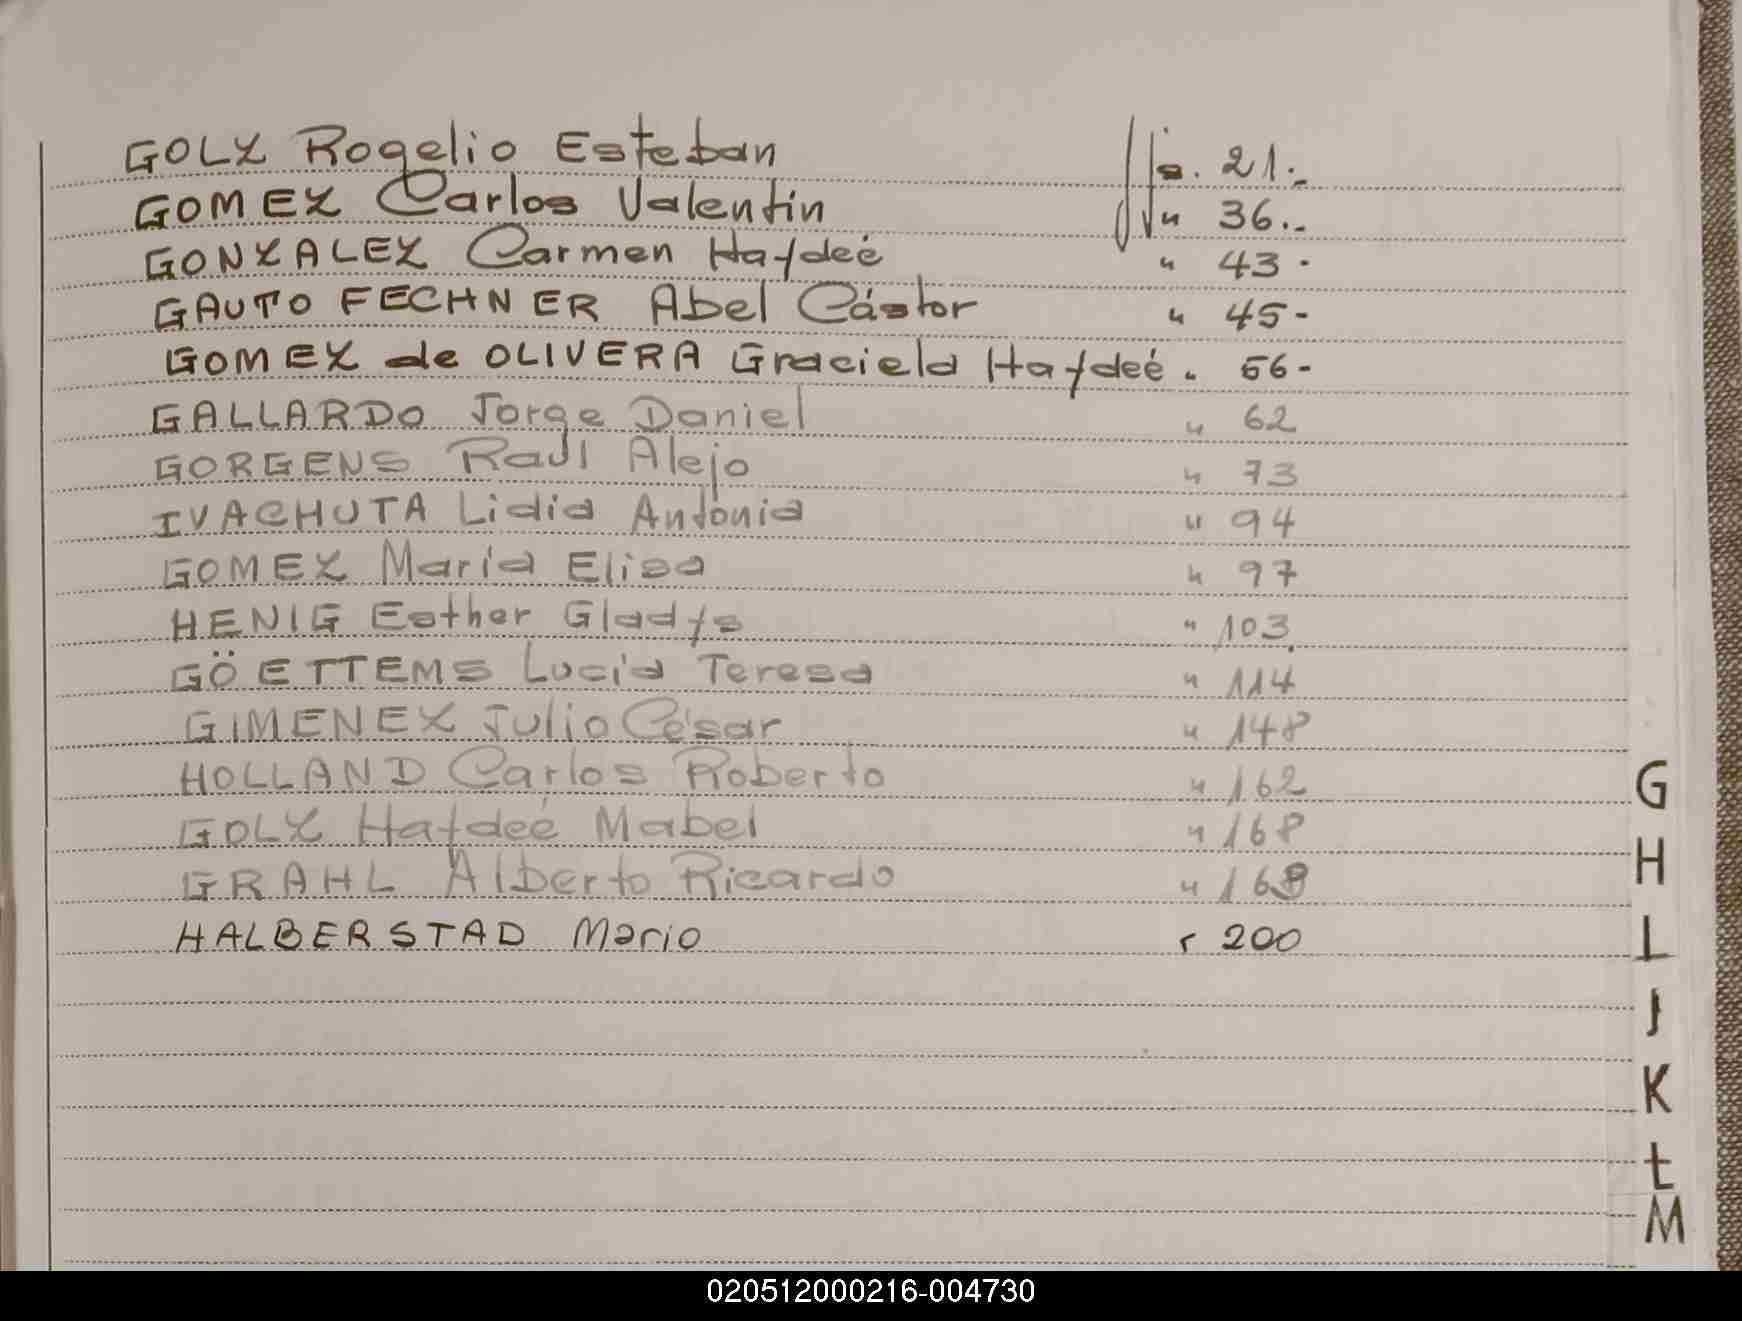 GOLZ Rogelio Esteban fjs. 21.-
GOMEZ Carlos Valentin " 36.-
GONZALEZ Carmen Haydeé " 43-
GAUTO FECHNER Abel Cástor " 45-
GOMEZ de OLIVERA Graciela Haydeé " 56-
GALLARDO Jorge Daniel " 62
GORGENS Raul Alejo " 73
IVACHUTA Lidia Antonia " 94
GOMEZ María Elisa " 97
HENIG Esther Gladys " 103
GÖETTEMS Lucía Teresa " 114
GIMENEZ Julio César " 148
HOLLAND Carlos Roberto " 162
GOLZ Haydeé Mabel " 168
GRAHL Alberto Ricardo " 169
HALBERSTAD Mario " 200
G
H
L
J
K
L
M
020512000216-004730